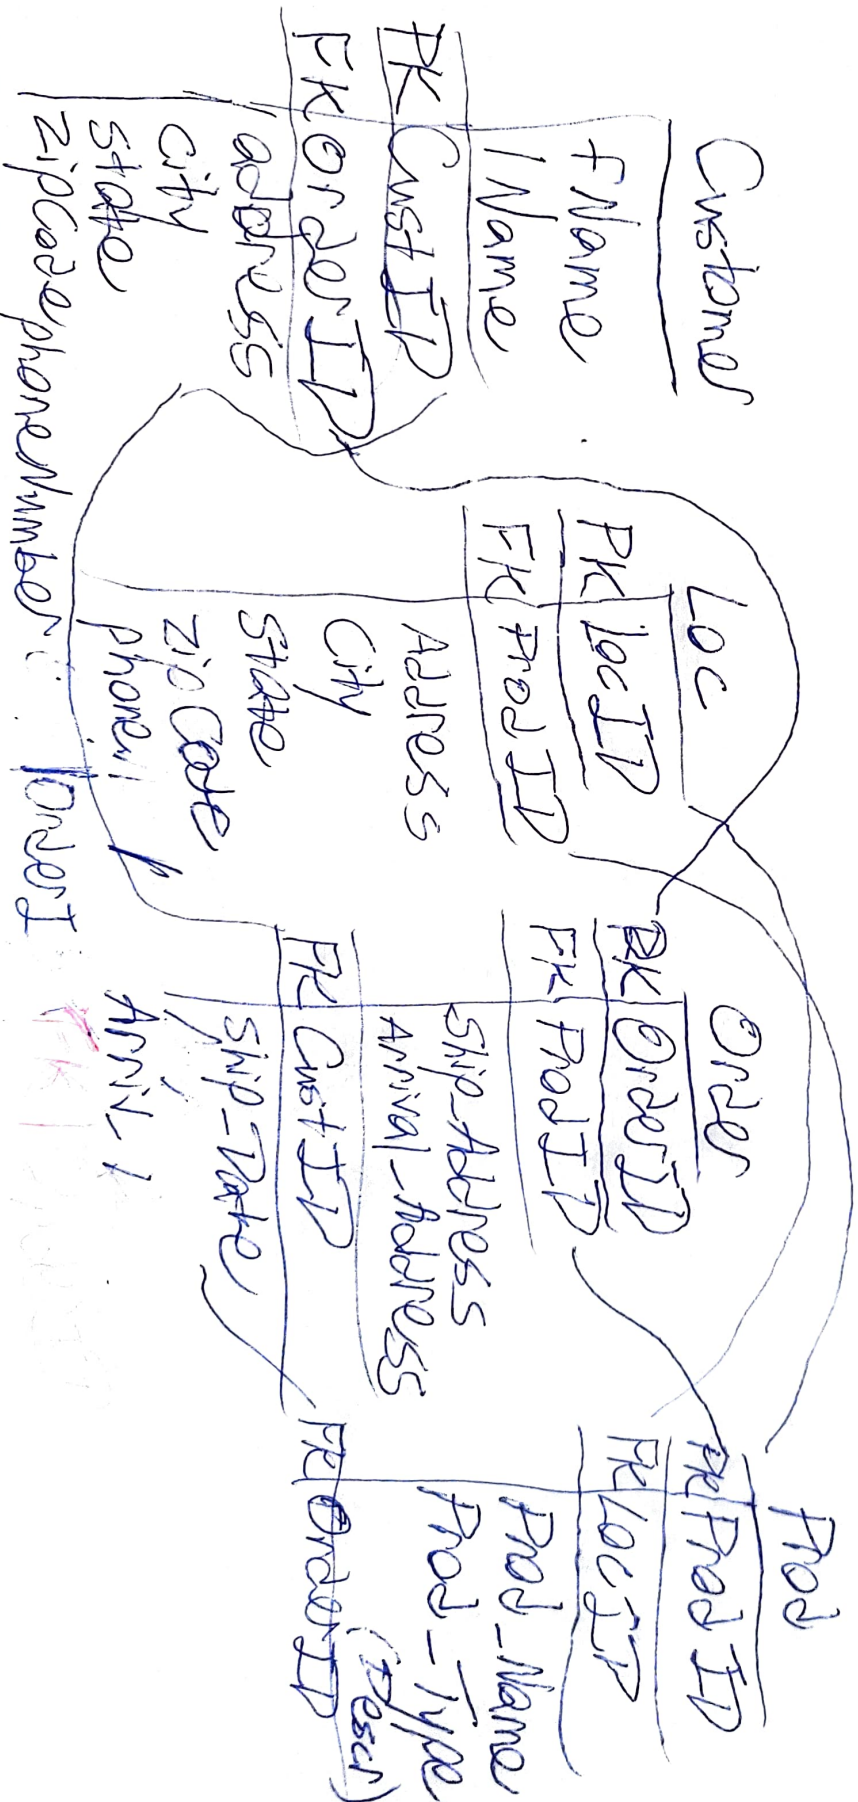 Customer
fName
lName
PK CustID
FK OrderID
address
city
state
zipCode
phoneNumber
Loc
PK LocID
FK ProdID
Address
City
State
zipCode
phone
OrderI
Order
PK OrderID
FK ProdID
Ship_Address
Arrival_Address
FK CustID
Ship_Date
Prod
PK ProdID
FK LocID
Prod_Name
Prod_Type
(Descr)
FK OrderID